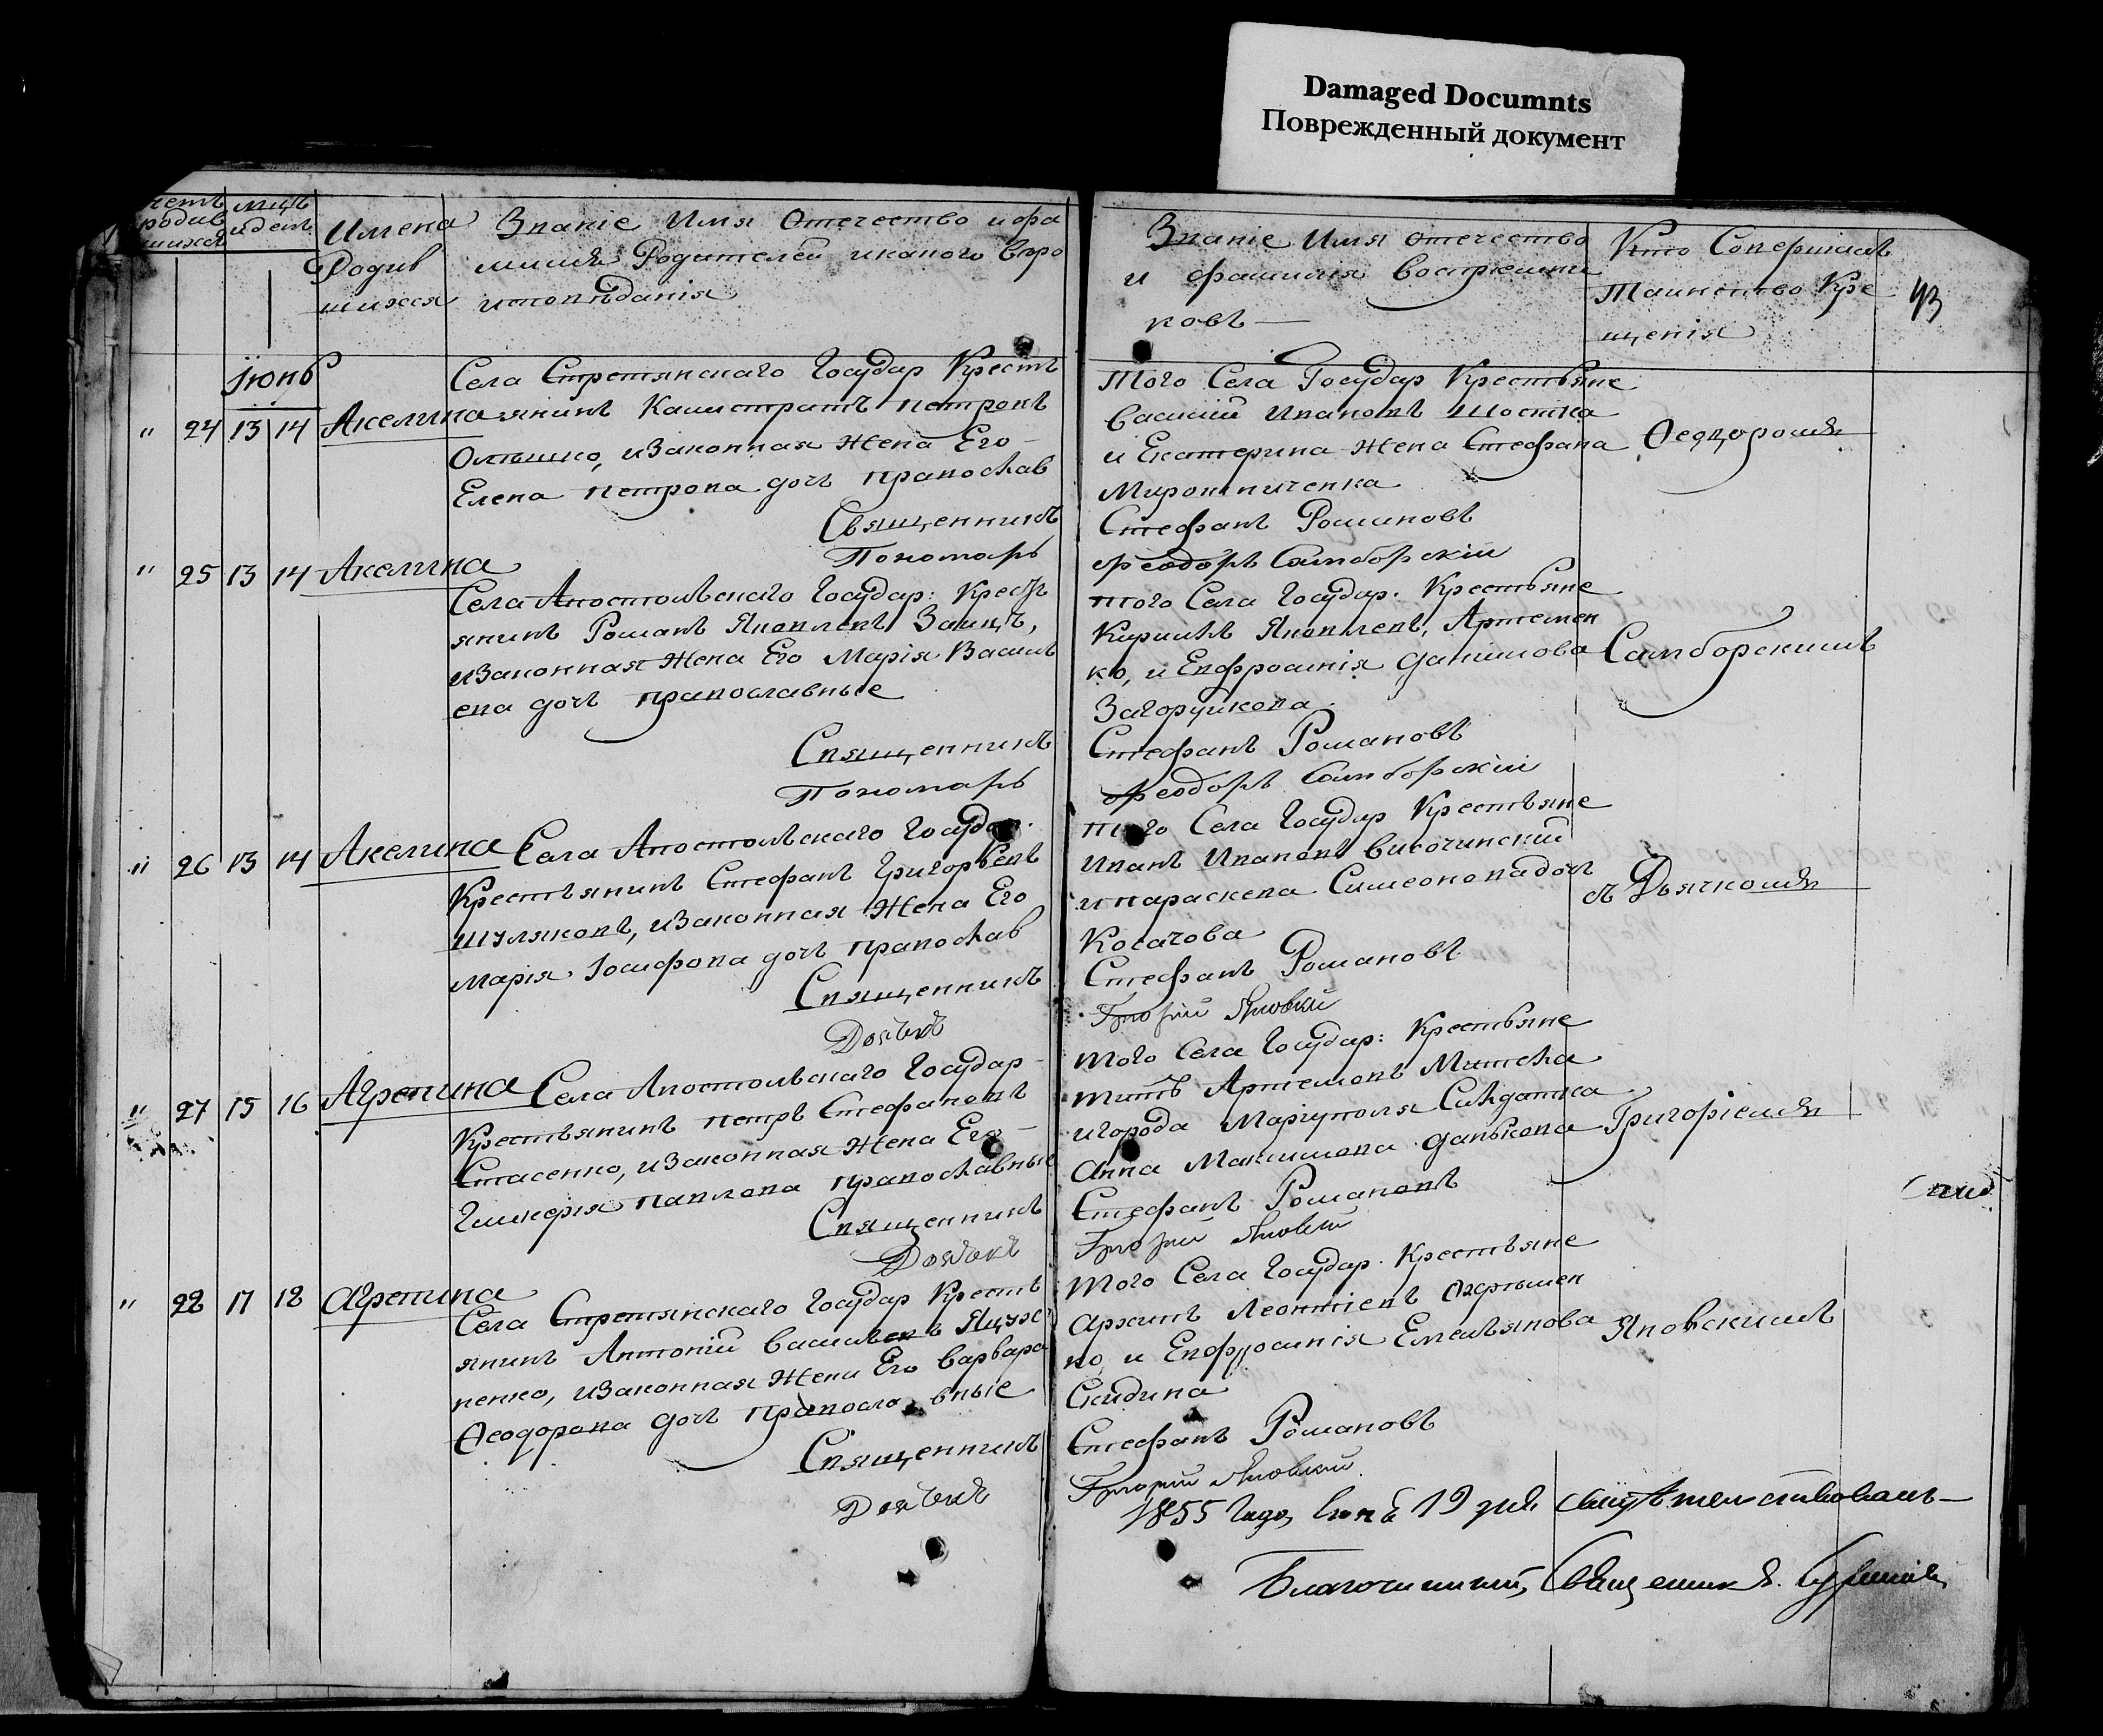 Damaged Documnts
Поврежденный документ
четъ
родив
шихся
мцъ
и день
Имена
Родив
шихся
Званіе Имя Отечество и фа
милія Родителей и какого Веро
исповѣданія
Званіе Имя отечество
и фамилія Воспріемни
ковъ —
Кто Совершалъ
Таинство Кре
щенія
43
Іюнь
" 24 13 14 Акелина
Села Стретянскаго Государ Кресть
янинъ Калистратъ Петровъ
и Законная Жена Его
Елена Петрова дочь православ
Священникъ
Пономарь
Того Села Государ Крестьяне
Василій Ивановъ Шостка
и Екатерина Жена Стефана
Мирошниченка
Стефанъ Романовъ
Феодоръ Самборскій
Ѳеодоромъ
" 25 13 14 Акелина
Села Апостольскаго Государ: Кресть
янинъ Романъ Яковлевъ Заицъ,
и Законная Жена Его Марія Василь
ева дочь православные
Священникъ
Пономарь
того Села Государ. Крестьяне
Кирилъ Яковлевъ, Артемен
ко, и Евфросинія Данилова
Загоруйкова
Стефанъ Романовъ
Феодоръ Самборскій
Самборскимъ
" 26 13 14 Акелина
Села Апостольскаго Государ.
Крестьянинъ Стефанъ Григорьевъ
Шуляковъ, и Законная Жена Его
Марія Іосифова дочь православ
Священникъ
Дьячекъ
того Села Государ Крестьяне
Иванъ Ивановъ Височинский
и Параскева Симеонова дочь
Косачова
Стефанъ Романовъ
Григорий Яновский
съ Дьячкомъ
" 27 15 16 Агрепина
Села Апостольскаго Государ-
Крестьянинъ Петръ Стефановъ
Стасенко, и Законная Жена Его
Гликерія Павлова православные
Священникъ
Дьячекъ
Того Села Государ: Крестьяне
Титъ Артемовъ
и города Маріуполя Солдатка
Анна Максимова Данькова
Стефанъ Романовъ
Григорий Яновский
Григоріемъ
" 28 17 18 Агрепина
Села Стретянскаго Государ Кресть
янинъ Антоній Васильевъ Яцух
ненко, и Законная Жена Его Варвара
Ѳеодорова дочь православные
Священникъ
Дьячекъ
Того Села Государ. Крестьяне
Архипъ Леонтіевъ
ко, и Евфросинія Емельянова
Скидина
Стефанъ Романовъ
Григорий Яновский
Яновскимъ
1855 Года Іюнѣ 19 дня свидѣтельствовалъ —
Благочинный, Священникъ